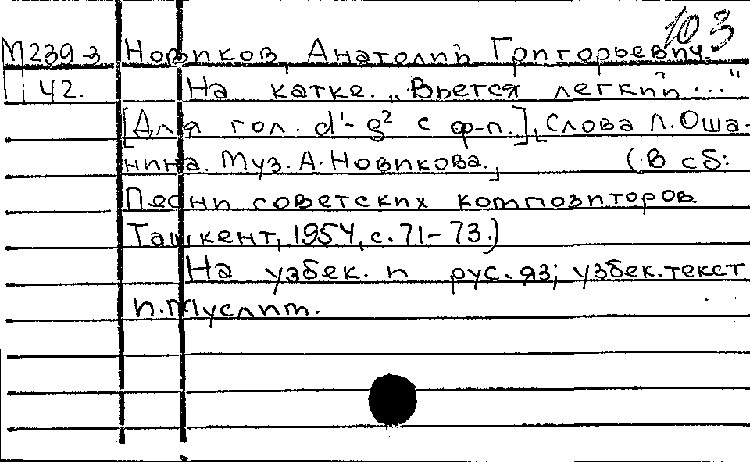 103
М239-3 Новиков, Анатолий Григорьевич.
42. На катке. „Вьется легкий..."
[Для гол. d¹-g² с ф-п.], Слова Л. Оша-
нина. Муз. А. Новикова., (В сб:
Песни советских композиторов
Ташкент, 1954, с. 71-73.)
На узбек. и рус. яз; узбек. текст
П. Муслим.